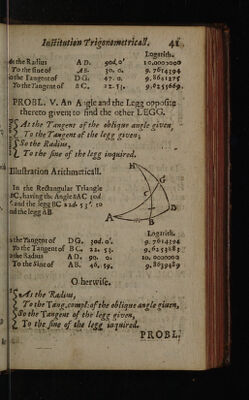 Institution Trigonometricall. 41
Logarith.
As the Radius AD. 90d.0' 10.0000000
To the sine of AB. 30. 0. 9.7614394
So the Tangent of DG. 47. 0.
To the Tangent of BC. 22. 53. 9.6255669.
PROBL. V. An Angle and the Legg opposite
thereto given: to find the other LEGG.
As the Tangent of the oblique angle given,
To the Tangent of the legg given;
So the Radius,
To the sine of the legg inquired.
Illustration Arithmeticall.
In the Rectangular Triangle
ABC, having the Angle BAC 30d
and the legg BC
find the legg AB.
H
G
C
D
A
B
Logarith.
As the Tangent of DG. 30d. 0'. 9.7614394
To the Tangent of BC. 22. 53.
So the Radius AD. 90. 0. 10.0000000
To the Sine of AB. 46. 59.
Otherwise.
As the Radius,
To the Tang. compl: of the oblique angle given,
So the Tangent of the legg given,
To the sine of the legg inquired.
PROBL.